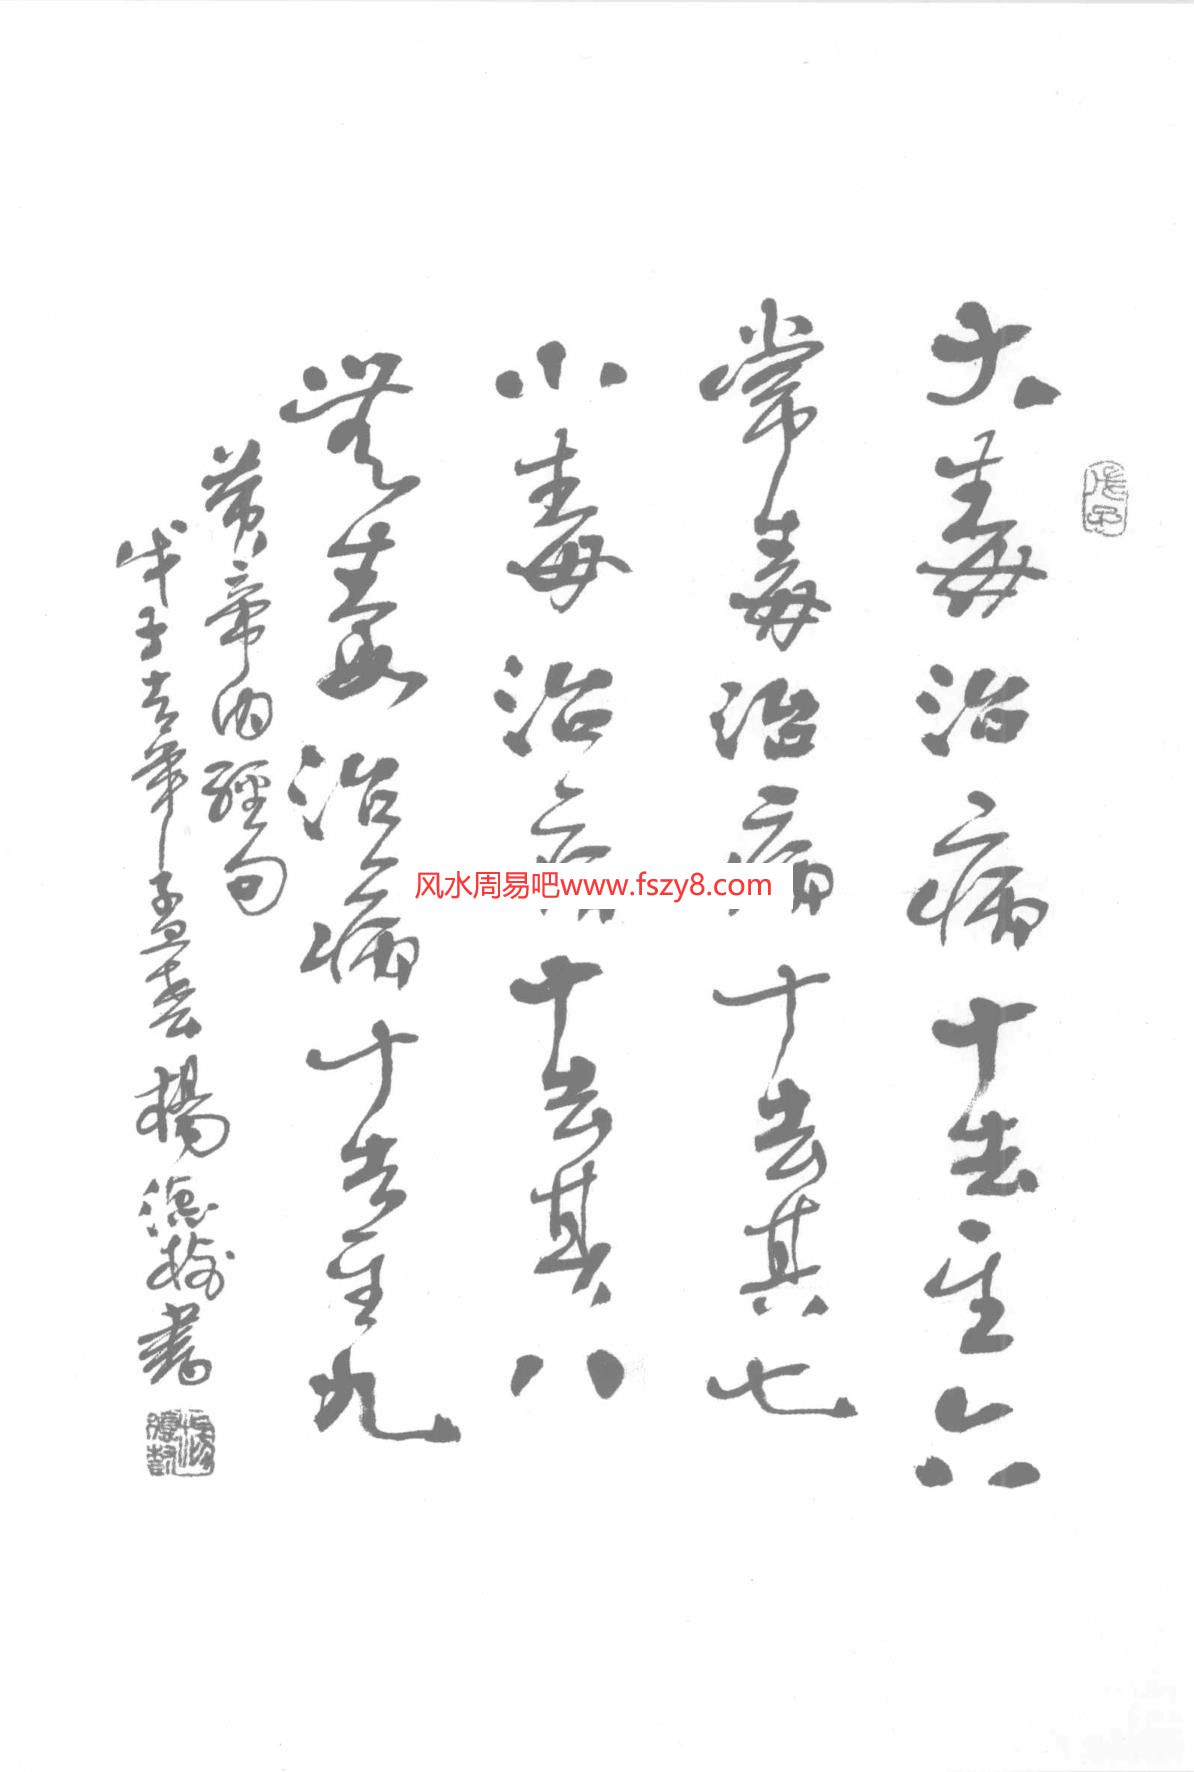 戊子
大毒治病十去其六
常毒治病十去其七
小毒治病十去其八
無毒治病十去其九
黄帝内經句
戊子年孟春楊德書
风水周易吧www.fszy8.com